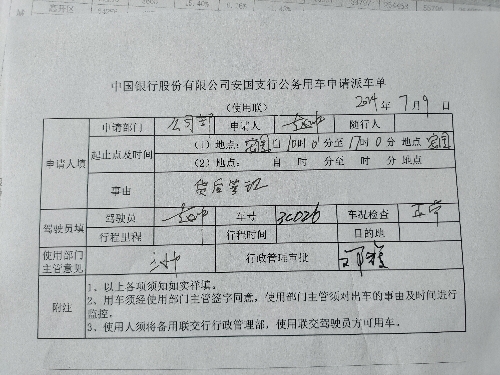 中国银行股份有限公司安国支行公务用车申请派车单
(使用联) 2024年7月9日
申请人填 申请部门 公司部 申请人 随行人
起止点及时间 (1) 地点: 安国 自 10时0分至17时0分 地点 安国
(2) 地点: 自 时 分至 时 分 地点
事由 贷后登记
驾驶员填 驾驶员 车号 3C026 车况检查 正常
行程里程 行程时间 目的地
使用部门主管意见 行政管理审批
附注 1、以上各项须如实详填。
2、用车须经使用部门主管签字同意,使用部门主管须对出车的事由及时间进行
监控。
3、使用人须将备用联交行行政管理部,使用联交驾驶员方可用车。